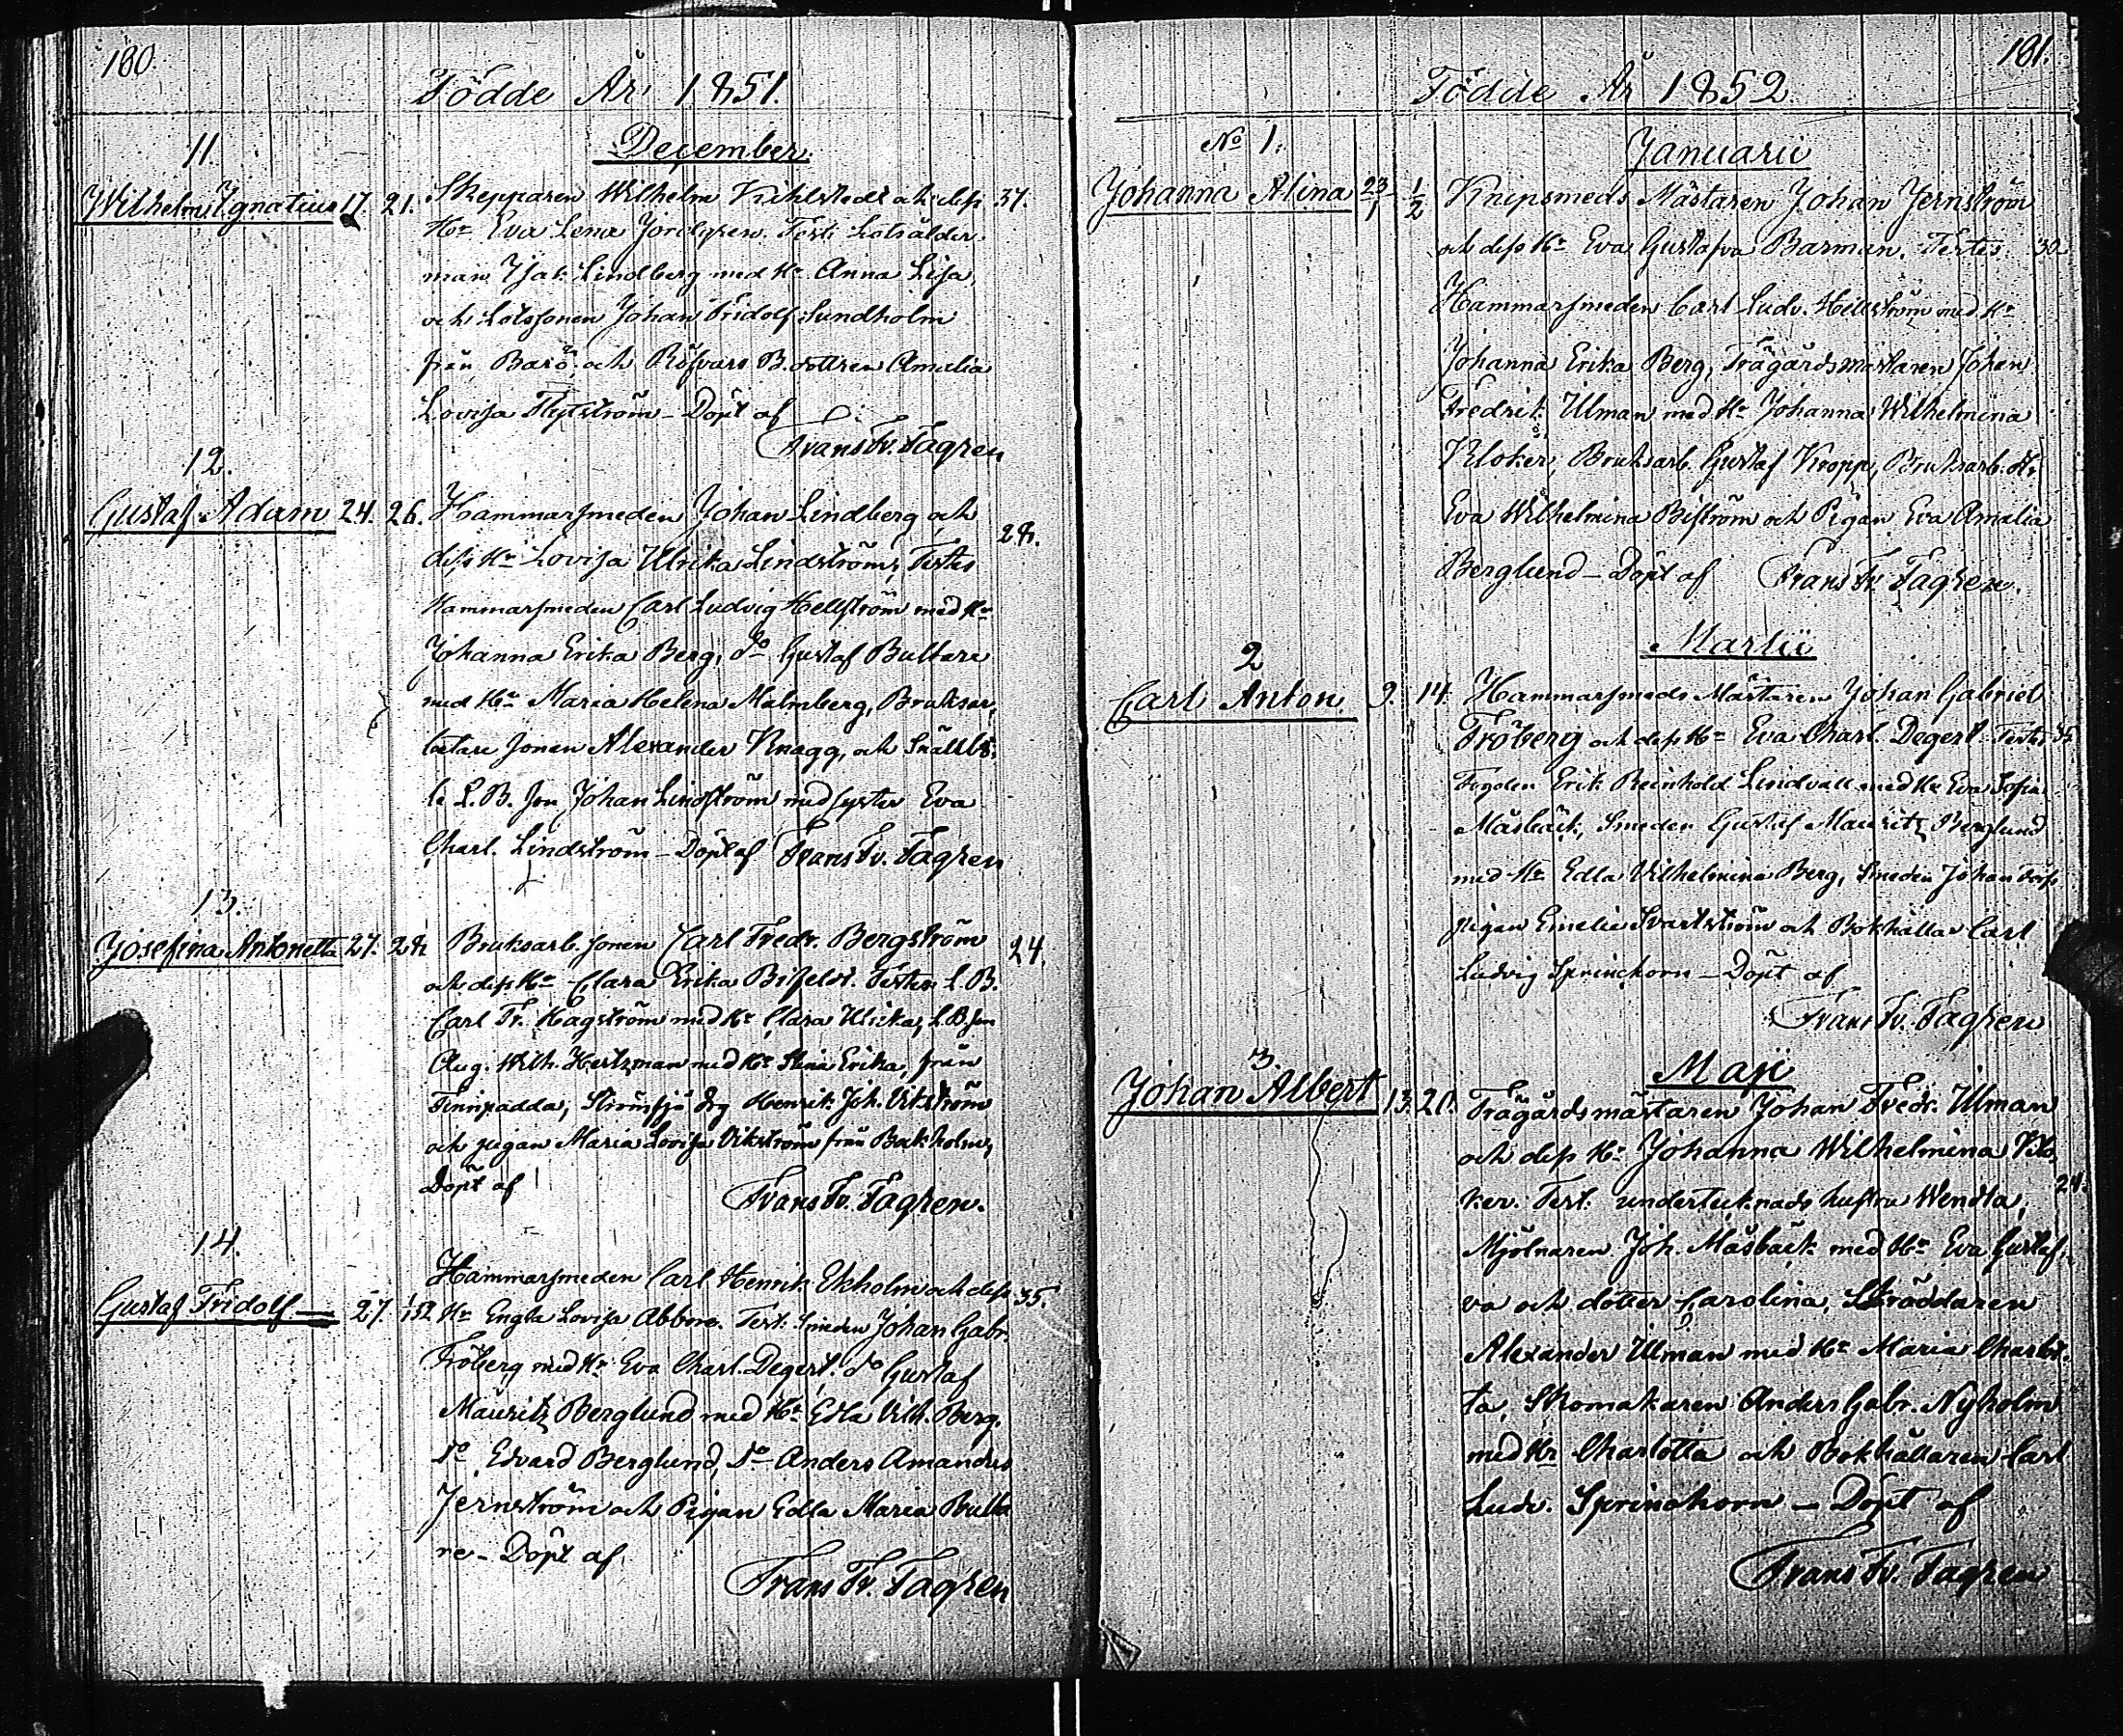 180.
Födde År 1851.
December
11.
Wilhelm Ygnatius 17. 21. Skepparen Wilhelm Kihlstedt och dess 37.
Hu Eva Lena Jordgren. Test: Lotsålder-
man Isak Lindberg med Hu Anna Lisa,
och Lotssonen Johan Fridolf Sundholm
från Barö, och Röfvars B. dottren Amalia
Lovisa Flytström – Döpt af
Frans Fr. Fagren
12.
Gustaf Adam 24. 26. Hammarsmeden Johan Lindberg och
28.
dess Hu Lovisa Ulrika Lindström, Testes
Hammarsmeden Carl Ludvig Hellström med Hu
Johanna Erika Berg, do Gustaf Bultare
med Hu Maria Helena Malmberg, Bruksar-
betare sonen Alexander Knagg, och Snällbö-
le L.B. son Johan Lindström med syster Eva
Charl. Lindström – Döpt af Frans Fr. Fagren
13.
Josefina Antonetta 27. 28. Bruksarb. sonen Carl Fredr. Bergström 24.
och dess Hu Clara Erika Bifeldt. Testes L.B.
Carl Fr. Hagström med Hu Clara Ulrika, L.B. son
Aug. Wilh. Hertzman med Hu Stina Erika, från
Finnpadda, Strömsjö drg Henrik Joh. Vikström
och pigan Maria Lovisa Vikström från Backholm,
Döpt af
Frans Fr. Fagren.
14.
Hammarsmeden Carl Henrik Ekholm och dess 35.
Gustaf Fridolf — 27. Hu Engla Lovisa Abborre. Test. Smeden Johan Gabr.
Fröberg med Hu Eva Charl. Degert. do Gustaf
Mauritz Berglund med Hu Edla Vilh. Berg.
do Edvard Berglund, do Anders Amandus
Jernström och Pigan Edla Maria Bulta
re – Döpt af
Frans Fr. Fagren
181.
Födde År 1852
No 1. Januarii
Johanna Alina 23/1 – 1/2 Knipsmeds Mästaren Johan Jernström
och dess Hu Eva Gustafva Barman. Testes: 30.
Hammarsmeden Carl Ludv. Hellström med Hu
Johanna Erika Berg, Trägårdsmästaren Johan
Fredrik Ulman med Hu Johanna Wilhelmina
Kloker, Bruksarb. Gustaf Kropp, Bruksarb. Hu
Eva Wilhelmina Biström och Pigan Eva Amalia
Berglund – Döpt af Frans Fr. Fagren.
Martii
2
Carl Anton 9. 14. Hammarsmeds Mästaren Johan Gabriel
Fröberg och dess Hu Eva Charl. Degert. Testes 35.
Fogden Erik Reinhold Lindvall med Hu Eva Sofia
Måsbäck, Smeden Gustaf Mauritz Berglund
med Hu Edla Vilhelmina Berg, Smeden Johan Forss
pigan Emelie Svartström och Bokhållar Carl
Ludvig Sprinchorn – Döpt af
Frans Fr. Fagren
Maji
3.
Johan Albert 13. 20. Trägårdsmästaren Johan Fredr. Ulman
och dess Hu Johanna Wilhelmina Klo-
ker. Test. undertecknads hustru Wendla, 24.
Mjölnaren Joh. Måsbäck med Hu Eva Gustaf-
va och dotter Carolina, Skräddaren
Alexander Ulman med Hu Maria Charlot-
ta, Skomakaren Anders Gabr. Nyholm
med Hu Charlotta och Bokhållaren Carl
Ludv. Sprinchorn – Döpt af
Frans Fr. Fagren